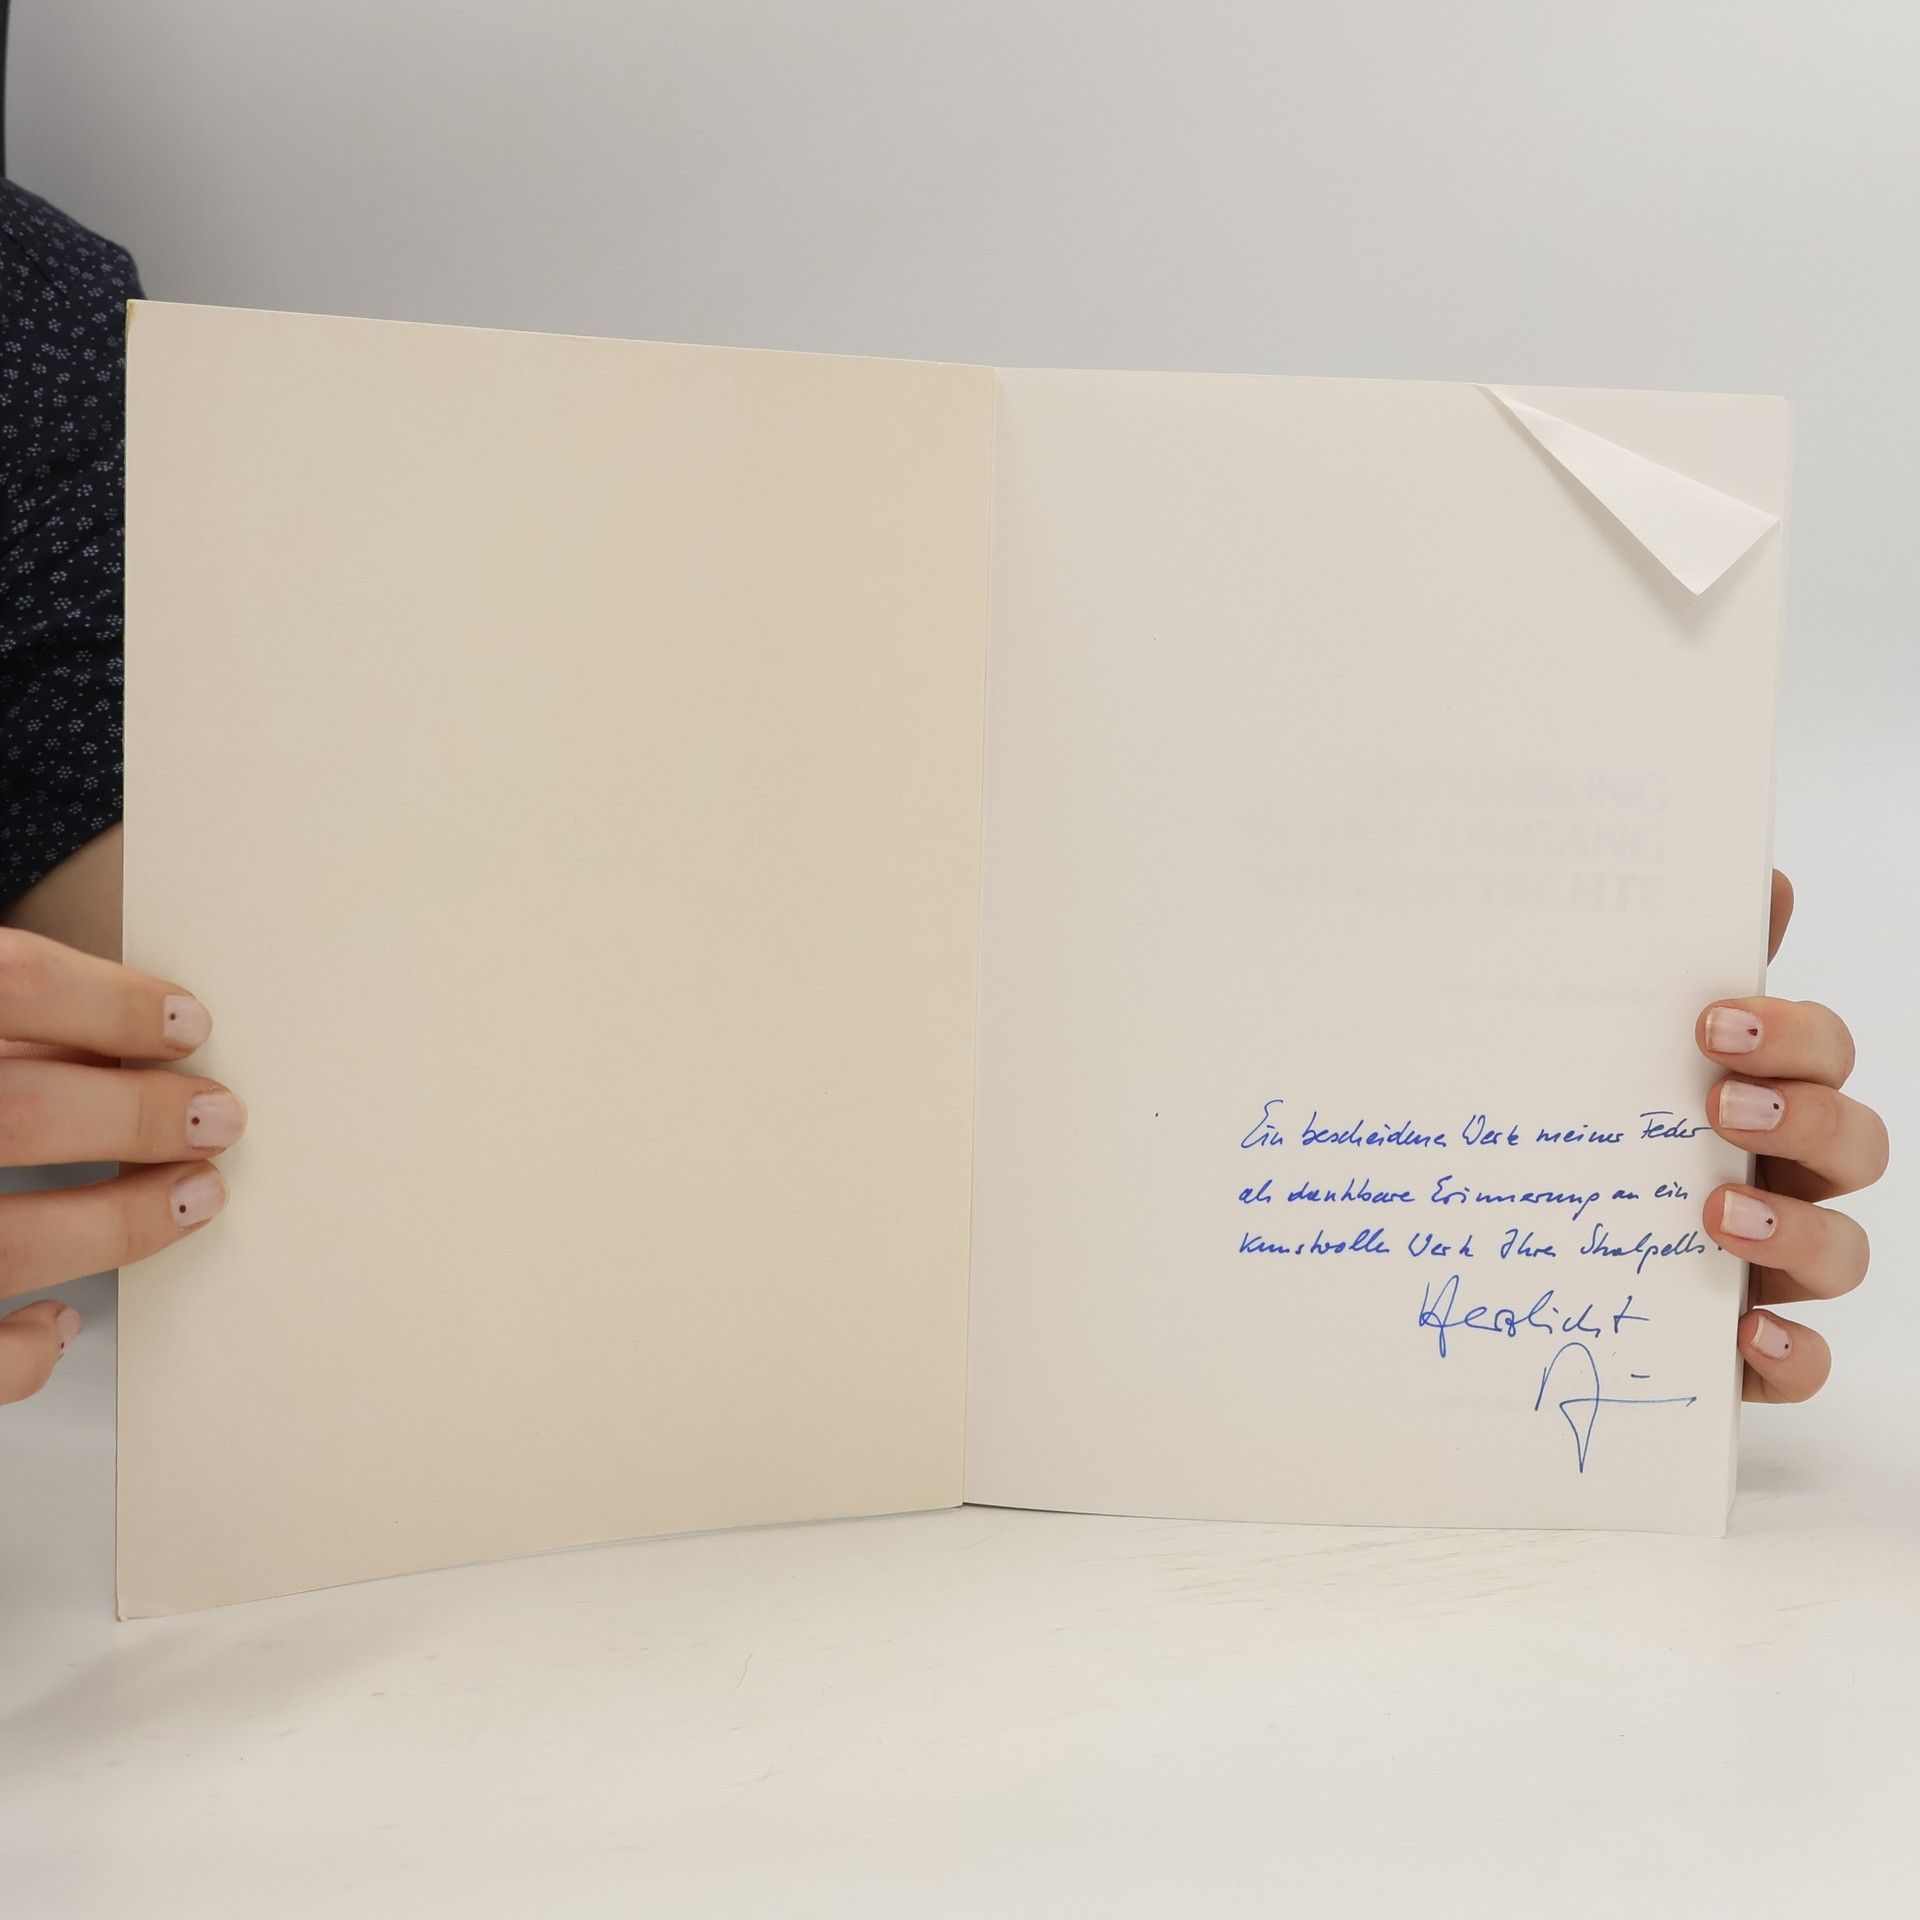 UNG
UMGANG
GESCHICHTE
Ein bescheidenes Werk meiner Feder
als dankbare Erinnerung an ein
kunstvolles Werk Ihres Skalpells.
Herzlichst